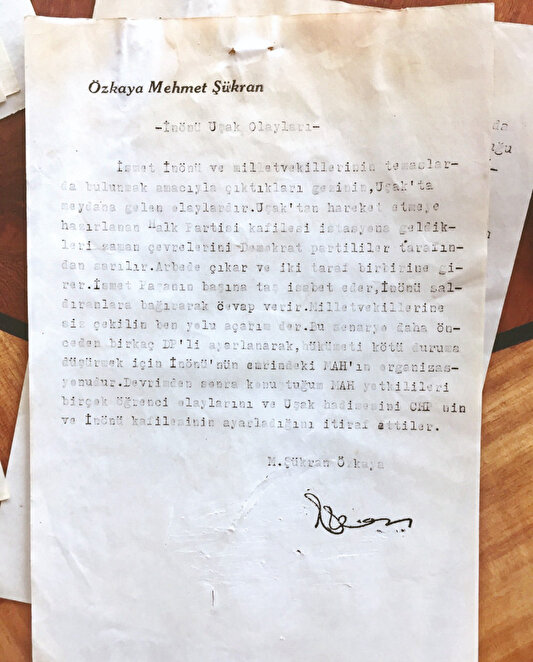 Özkaya Mehmet Şükran
-İnönü Uşak Olayları-
İsmet İnönü ve milletvekillerinin temaslar-
da bulunmak amacıyla çıktıkları gezinin,Uşak'ta
meydana gelen olaylardır.Uşak'tan hareket etmeye
hazırlanan Halk Partisi kafilesi istasyona geldik-
leri zaman çevrelerini Demokrat partililer tarafın-
dan sarılır.Arbede çıkar ve iki taraf birbirine gi-
rer.İsmet Paşanın başına taş isabet eder,İnönü sal-
dıranlara bağırarak cevap verir.Milletvekillerine
siz çekilin ben yolu açarım der.Bu senaryo daha ön-
ceden birkaç DP'li ayarlanarak,hükümeti kötü duruma
düşürmek için İnönü'nün emrindeki MAH'ın organizas-
yonudur.Devrimden sonra konuştuğum MAH yetkilileri
birçok öğrenci olaylarını ve Uşak hadisesini CHP nin
ve İnönü kafilesinin ayarladığını itiraf ettiler.
M.Şükran Özkaya
da